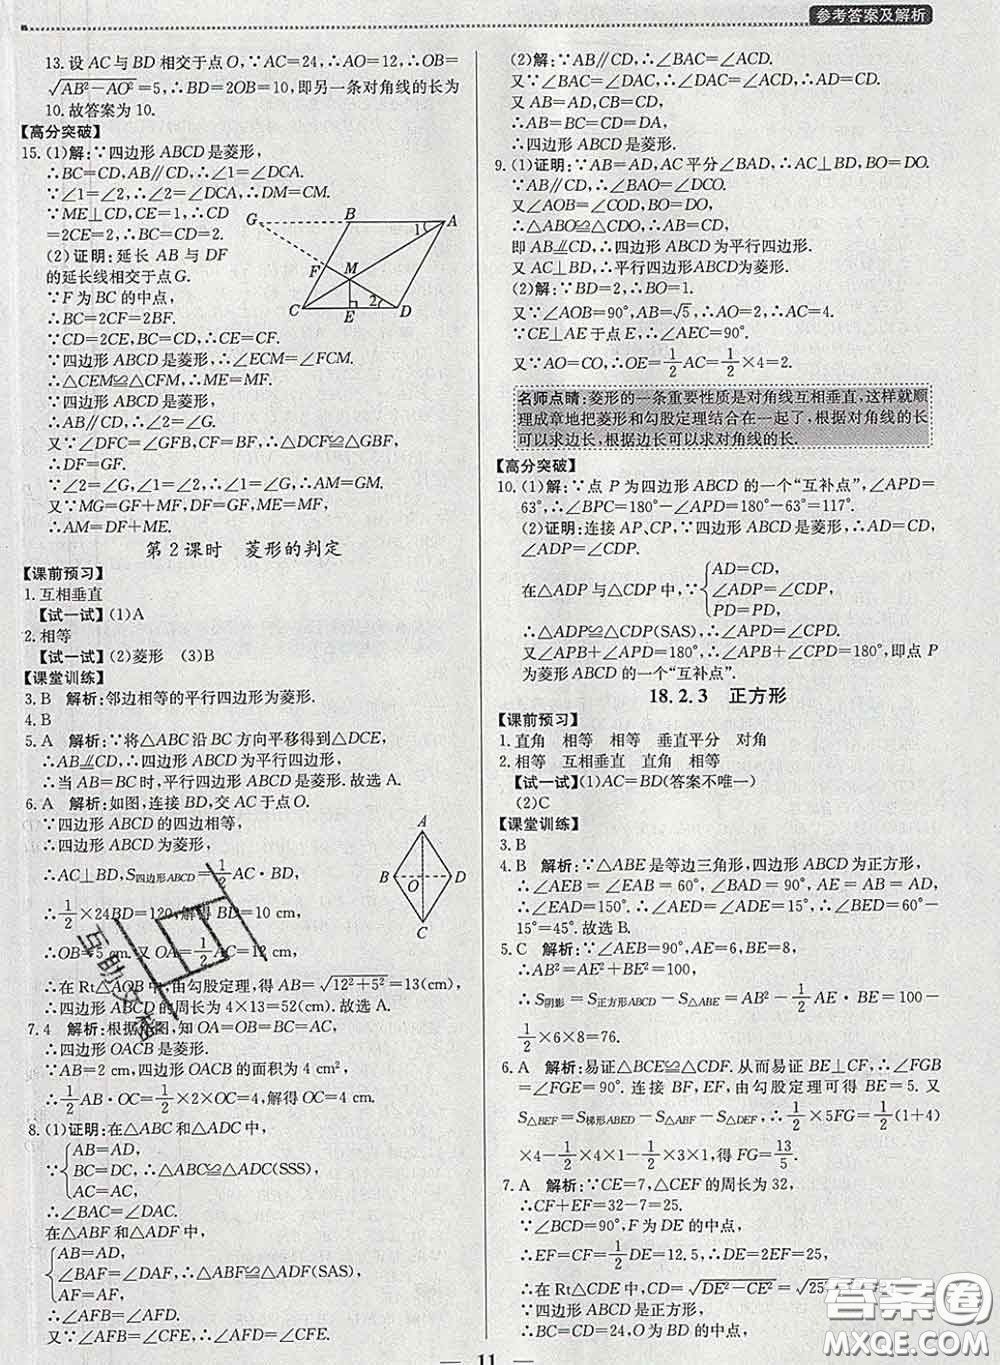 参考答案及解析
13. 设 AC 与 BD 相交于点 O,∵AC=24,∴AO=12,∴OB=
√(AB²-AO²)=5,∴BD=2OB=10,即另一条对角线的长为
10. 故答案为 10.
【高分突破】
15. (1)解:∵四边形 ABCD 是菱形,
∴BC=CD,AB∥CD,∴∠1=∠DCA.
∵∠1=∠2,∴∠2=∠DCA,∴DM=CM.
∵ME⊥CD,CE=1,∴CD
=2CE=2,∴BC=CD=2.
(2)证明:延长 AB 与 DF
的延长线相交于点G.
∵F 为 BC 的中点,
∴BC=2CF=2BF.
∵CD=2CE,BC=CD,∴CE=CF.
∵四边形 ABCD 是菱形,∴∠ECM=∠FCM.
∴△CEM≌△CFM,∴ME=MF.
又∵四边形 ABCD 是菱形,∴AB∥CD,∴∠2=∠G.
又∵∠DFC=∠GFB,CF=BF,∴△CDF≌△BGF,
∴DF=GF.
∵∠2=∠G,∠1=∠2,∴∠1=∠G,∴AM=GM.
又∵MG=GF+MF,GF=DF,MF=ME,
∴AM=DF+ME.
G B A 1 F M C E 2 D
第 2 课时 菱形的判定
【课前预习】
1. 互相垂直
【试一试】(1)A
2. 相等
【试一试】(2)菱形 (3)B
【课堂训练】
3. B 解析:邻边相等的平行四边形为菱形.
4. B
5. A 解析:∵将△ABC 沿 BC 方向平移得到△DCE,
∴AB⫽CD,∴四边形 ABCD 为平行四边形,
∴当 AB=BC 时,平行四边形 ABCD 是菱形. 故选 A.
6. A 解析:如图,连接 BD,交 AC 于点 O.
∵四边形 ABCD 的四边相等,
∴四边形 ABCD 为菱形,
∴AC⊥BD,S四边形ABCD=1/2AC·BD,
∴1/2×24BD=120,解得 BD=10 cm,
∴OB=5 cm. 又 OA=1/2AC=12 cm,
A B O D C
∴在 Rt△AOB 中,由勾股定理,得 AB=√(12²+5²)=13(cm),
∴四边形 ABCD 的周长为 4×13=52(cm). 故选 A.
7. 4 解析:根据作图,知 OA=OB=BC=AC,
∴四边形 OACB 是菱形.
∵AB=2 cm,四边形 OACB 的面积为 4 cm²,
∴1/2AB·OC=1/2×2×OC=4,解得 OC=4 cm.
8. (1)证明:在△ABC 和△ADC 中,
∵{AB=AD,
BC=DC,∴△ABC≌△ADC(SSS),
AC=AC,
∴∠BAC=∠DAC.
在△ABF 和△ADF 中,
{AB=AD,
∠BAF=∠DAF,∴△ABF≌△ADF(SAS),
AF=AF,
∴∠AFB=∠AFD.
又∵∠AFB=∠CFE,∴∠AFD=∠CFE.
(2)解:∵AB∥CD,∴∠BAC=∠ACD.
又∵∠BAC=∠DAC,∴∠DAC=∠ACD,∴AD=CD.
又 AB=AD,CB=CD,
∴AB=CB=CD=DA,
∴四边形 ABCD 是菱形.
9. (1)证明:∵AB=AD,AC 平分∠BAD,∴AC⊥BD,BO=DO.
又∵AB∥CD,∴∠BAO=∠DCO.
又∠AOB=∠COD,
∴△ABO≌△CDO,∴AB=CD,
即 AB⫽CD,∴四边形 ABCD 为平行四边形.
又AB=AD,∴平行四边形ABCD为菱形.
(2)解:∵BD=2,∴BO=1.
又∵∠AOB=90°,AB=√5,∴AO=2,∴AC=4.
∵CE⊥AE 于点 E,∴∠AEC=90°.
又∵AO=CO,∴OE=1/2AC=1/2×4=2.
名师点睛:菱形的一条重要性质是对角线互相垂直,这样就顺
理成章地把菱形和勾股定理结合在一起了,根据对角线的长
可以求边长,根据边长可以求对角线的长.
【高分突破】
10. (1)解:∵点 P 为四边形 ABCD 的一个“互补点”,∠APD=
63°,∴∠BPC=180°-∠APD=180°-63°=117°.
(2)证明:连接 AP、CP,∵四边形 ABCD 是菱形,∴AD=
CD,∠ADP=∠CDP.
在△ADP 与△CDP 中,{AD=CD,
∠ADP=∠CDP,
PD=PD,
∴△ADP≌△CDP(SAS),∴∠APD=∠CPD.
又∠APB+∠APD=180°,∴∠APB+∠CPD=180°,即点 P
为菱形 ABCD 的一个“互补点”.
18.2.3 正方形
【课前预习】
1. 直角 相等 相等 垂直平分 对角
2. 相等 互相垂直 直角 相等
【试一试】(1)AC=BD(答案不唯一)
(2)C
【课堂训练】
3. B
4. B 解析:∵△ABE 是等边三角形,四边形 ABCD 为正方形,
∴∠AEB=∠EAB=60°,∠BAD=90°,AE=AD,
∴∠EAD=150°. ∴∠AED=15°,∴∠BED=60°-
15°=45°. 故选 B.
5. C 解析:∵∠AEB=90°,AE=6,BE=8,
∴AB²=AE²+BE²=100,
∴S阴影=S正方形ABCD-S△ABE=AB²-1/2AE·BE=100-
1/2×6×8=76.
6. A 解析:易证△BCE≌△CDF. 从而易证 BE⊥CF,∴∠FGB
=∠FGE=90°. 连接 BF,EF,由勾股定理可得 BE=5. 又
S△BEF=S梯形ABED-S△ABF-S△DEF,∴1/2×5FG=1/2(1+4)
×4-1/2×4×1-1/2×3×1,得 FG=13/5.
7. A 解析:∵CE=7,△CEF 的周长为 32,
∴CF+EF=32-7=25.
∵∠BCD=90°,F 为 DE 的中点,
∴EF=CF=1/2DE=12.5,∴DE=2EF=25,
∴在 Rt△CDE 中,CD=√(DE²-CE²)=√(25
∵四边形 ABCD 为正方形,
∴BC=CD=24,O 为 BD 的中点,
互助文档
答案圈
MXQE.COM
11